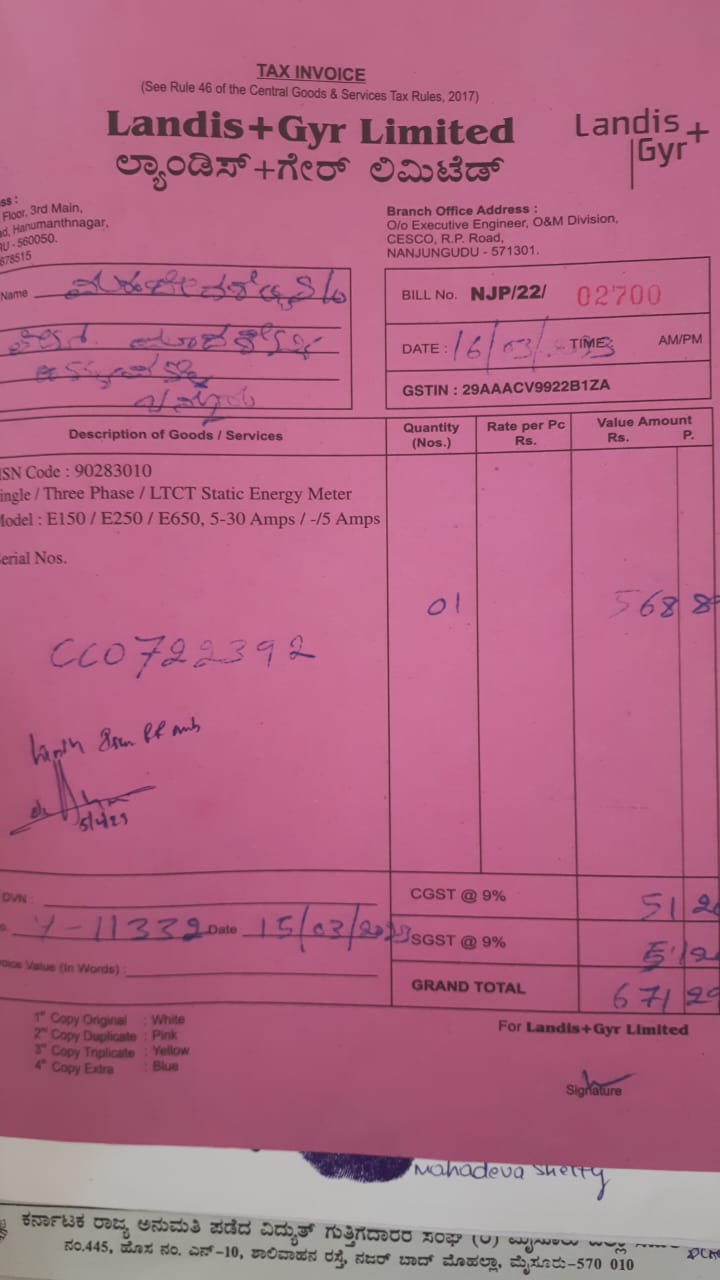 TAX INVOICE
(See Rule 46 of the Central Goods & Services Tax Rules, 2017)
Landis+Gyr Limited
ಲ್ಯಾಂಡಿಸ್+ಗೇರ್ ಲಿಮಿಟೆಡ್
Landis
Gyr+
ss :
Floor, 3rd Main,
d, Hanumanthnagar,
RU - 560050.
678515
Branch Office Address :
O/o Executive Engineer, O&M Division,
CESCO, R.P. Road,
NANJUNGUDU - 571301.
Name
S/o
BILL No. NJP/22/ 02700
DATE : 16/03/ TIME AM/PM
GSTIN : 29AAACV9922B1ZA
Description of Goods / Services
Quantity (Nos.)
Rate per Pc Rs.
Value Amount Rs. P.
SN Code : 90283010
ingle / Three Phase / LTCT Static Energy Meter
Model : E150 / E250 / E650, 5-30 Amps / -/5 Amps
erial Nos.
01 568
CC0722392
5/4/23
DVN :
CGST @ 9% 51 20
Y-11332 Date 15/03/2023
SGST @ 9% 51 20
oice Value (In Words) :
GRAND TOTAL 671 29
1st Copy Original : White
2nd Copy Duplicate : Pink
3rd Copy Triplicate : Yellow
4th Copy Extra : Blue
For Landis+Gyr Limited
Signature
Mahadeva Shetty
ಕರ್ನಾಟಕ ರಾಜ್ಯ ಅನುಮತಿ ಪಡೆದ ವಿದ್ಯುತ್ ಗುತ್ತಿಗೆದಾರರ ಸಂಘ (ರಿ)
ನಂ.445, ಹೊಸ ನಂ. ಎನ್-10, ಶಾಲಿವಾಹನ ರಸ್ತೆ, ನಜರ್ ಬಾದ್ ಮೊಹಲ್ಲಾ, ಮೈಸೂರು-570 010